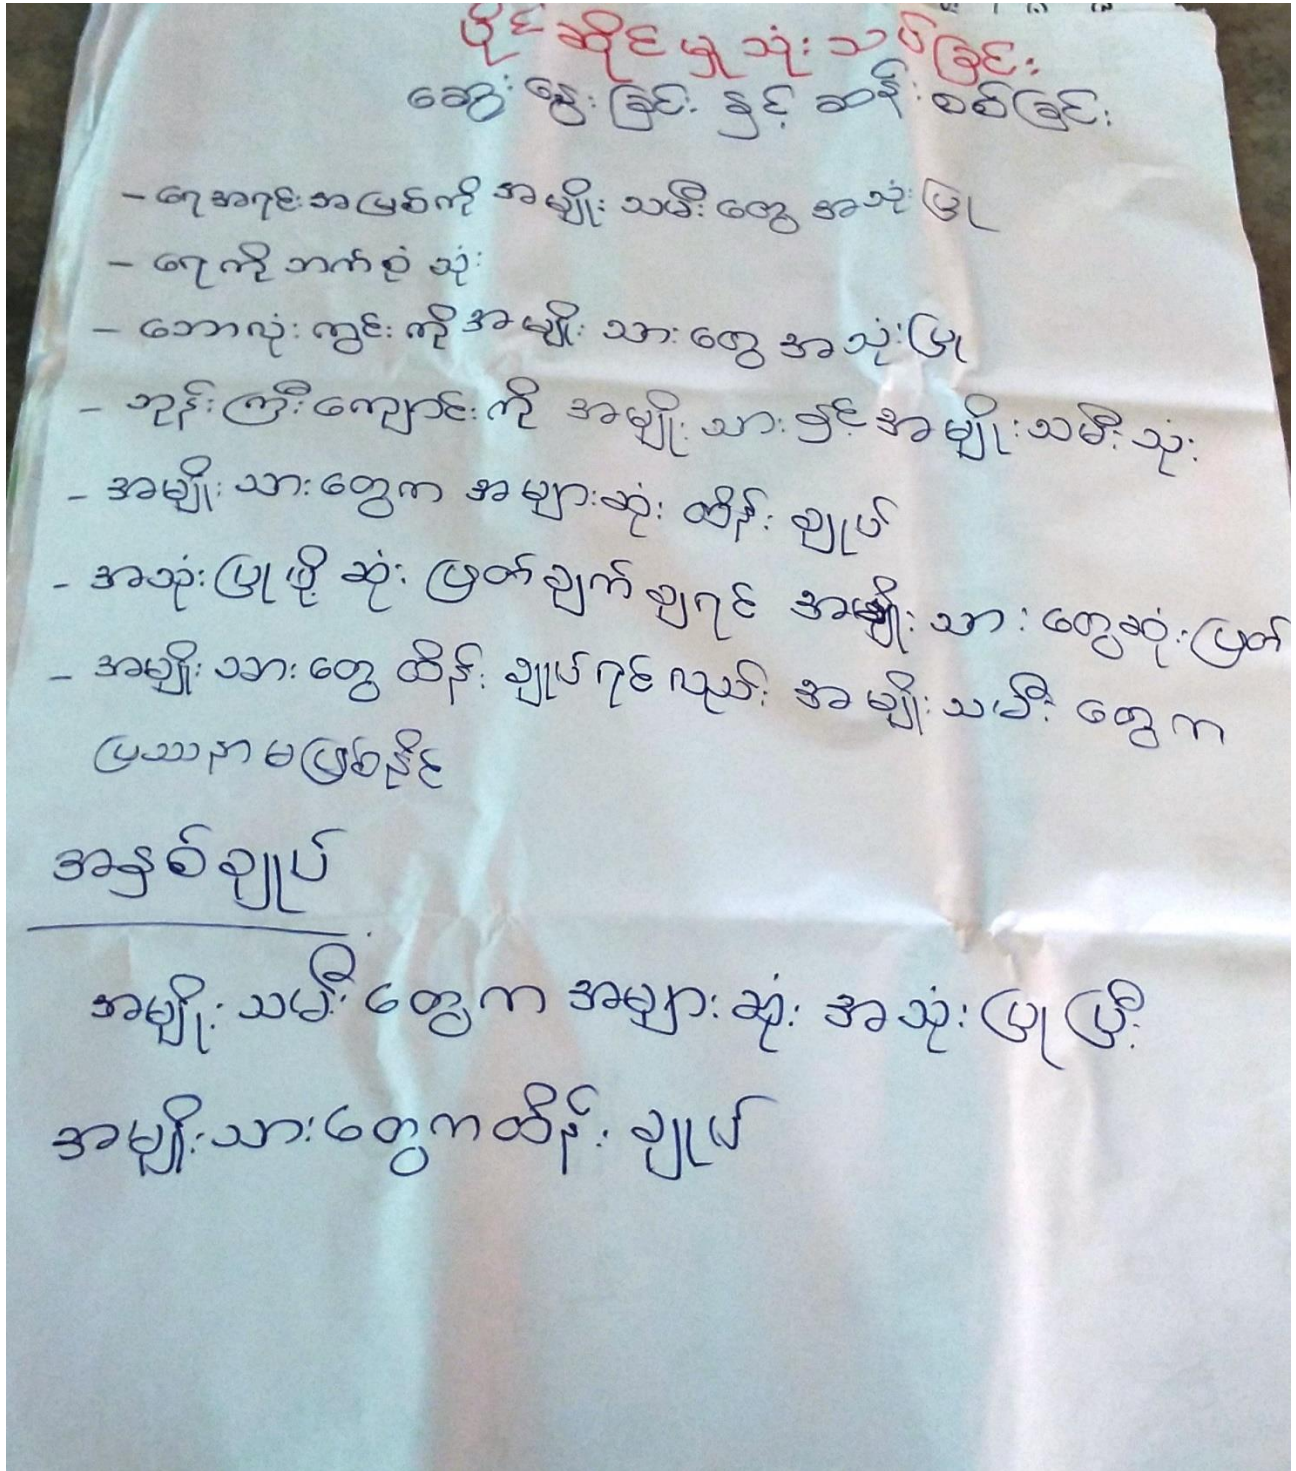 ပိုင်ဆိုင်မှုသုံးသပ်ခြင်း
ဆွေးနွေးခြင်းနှင့် ဆန်းစစ်ခြင်း
- ရေအရင်းအမြစ်ကို အမျိုးသမီးတွေ အသုံးပြု
- ရေကို ဘက်စုံသုံး
- ဘောလုံးကွင်းကို အမျိုးသားတွေ အသုံးပြု
- ဘုန်းကြီးကျောင်းကို အမျိုးသားနှင့် အမျိုးသမီးသုံး
- အမျိုးသားတွေက အများဆုံး ထိန်းချုပ်
- အသုံးပြုဖို့ ဆုံးဖြတ်ချက်ချရင် အမျိုးသားတွေဆုံးဖြတ်
- အမျိုးသားတွေ ထိန်းချုပ်ရင်လည်း အမျိုးသမီးတွေက
ပြဿနာမဖြစ်နိုင်
အနှစ်ချုပ်
အမျိုးသမီးတွေက အများဆုံး အသုံးပြုပြီး
အမျိုးသားတွေကထိန်းချုပ်